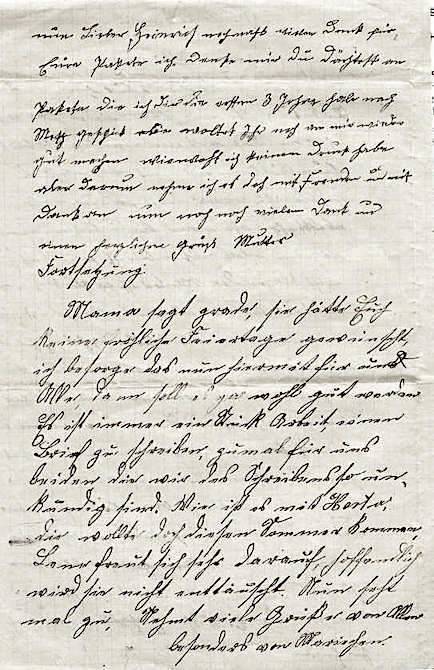 nun Lieber Heinrich nochmals vielen Dank für
Eure Pakete ich denke mir du dachtest an
Pakete die ich dir die ersten 3 Jahre habe nach
Metz geschickt oder wolltet Ihr noch an mir wieder
gut machen wiewohl ich keinen Dank habe
aber darum nehme ich es doch mit Freuden und mit
Dank an nun noch vielen Dank und
einen herzlichen Grüß Mutter
Fortsetzung
Mama sagt grade, sie hätte Euch
keine fröhliche Feiertage gewünscht,
ich besorge das nun hiermit für uns
Alle, dann soll wohl gut werden
Es ist immer ein Stück Arbeit einen
Brief zu schreiben, zumal für uns
beiden die wir des Schreibens so un-
kundig sind. Wie ist es mit Herta,
die wollte doch diesen Sommer kommen,
Lene freut sich sehr darauf, hoffentlich
wird sie nicht enttäuscht. Nun seht
mal zu. Nehmt viele Grüße von Allen
besonders von Mariechen.